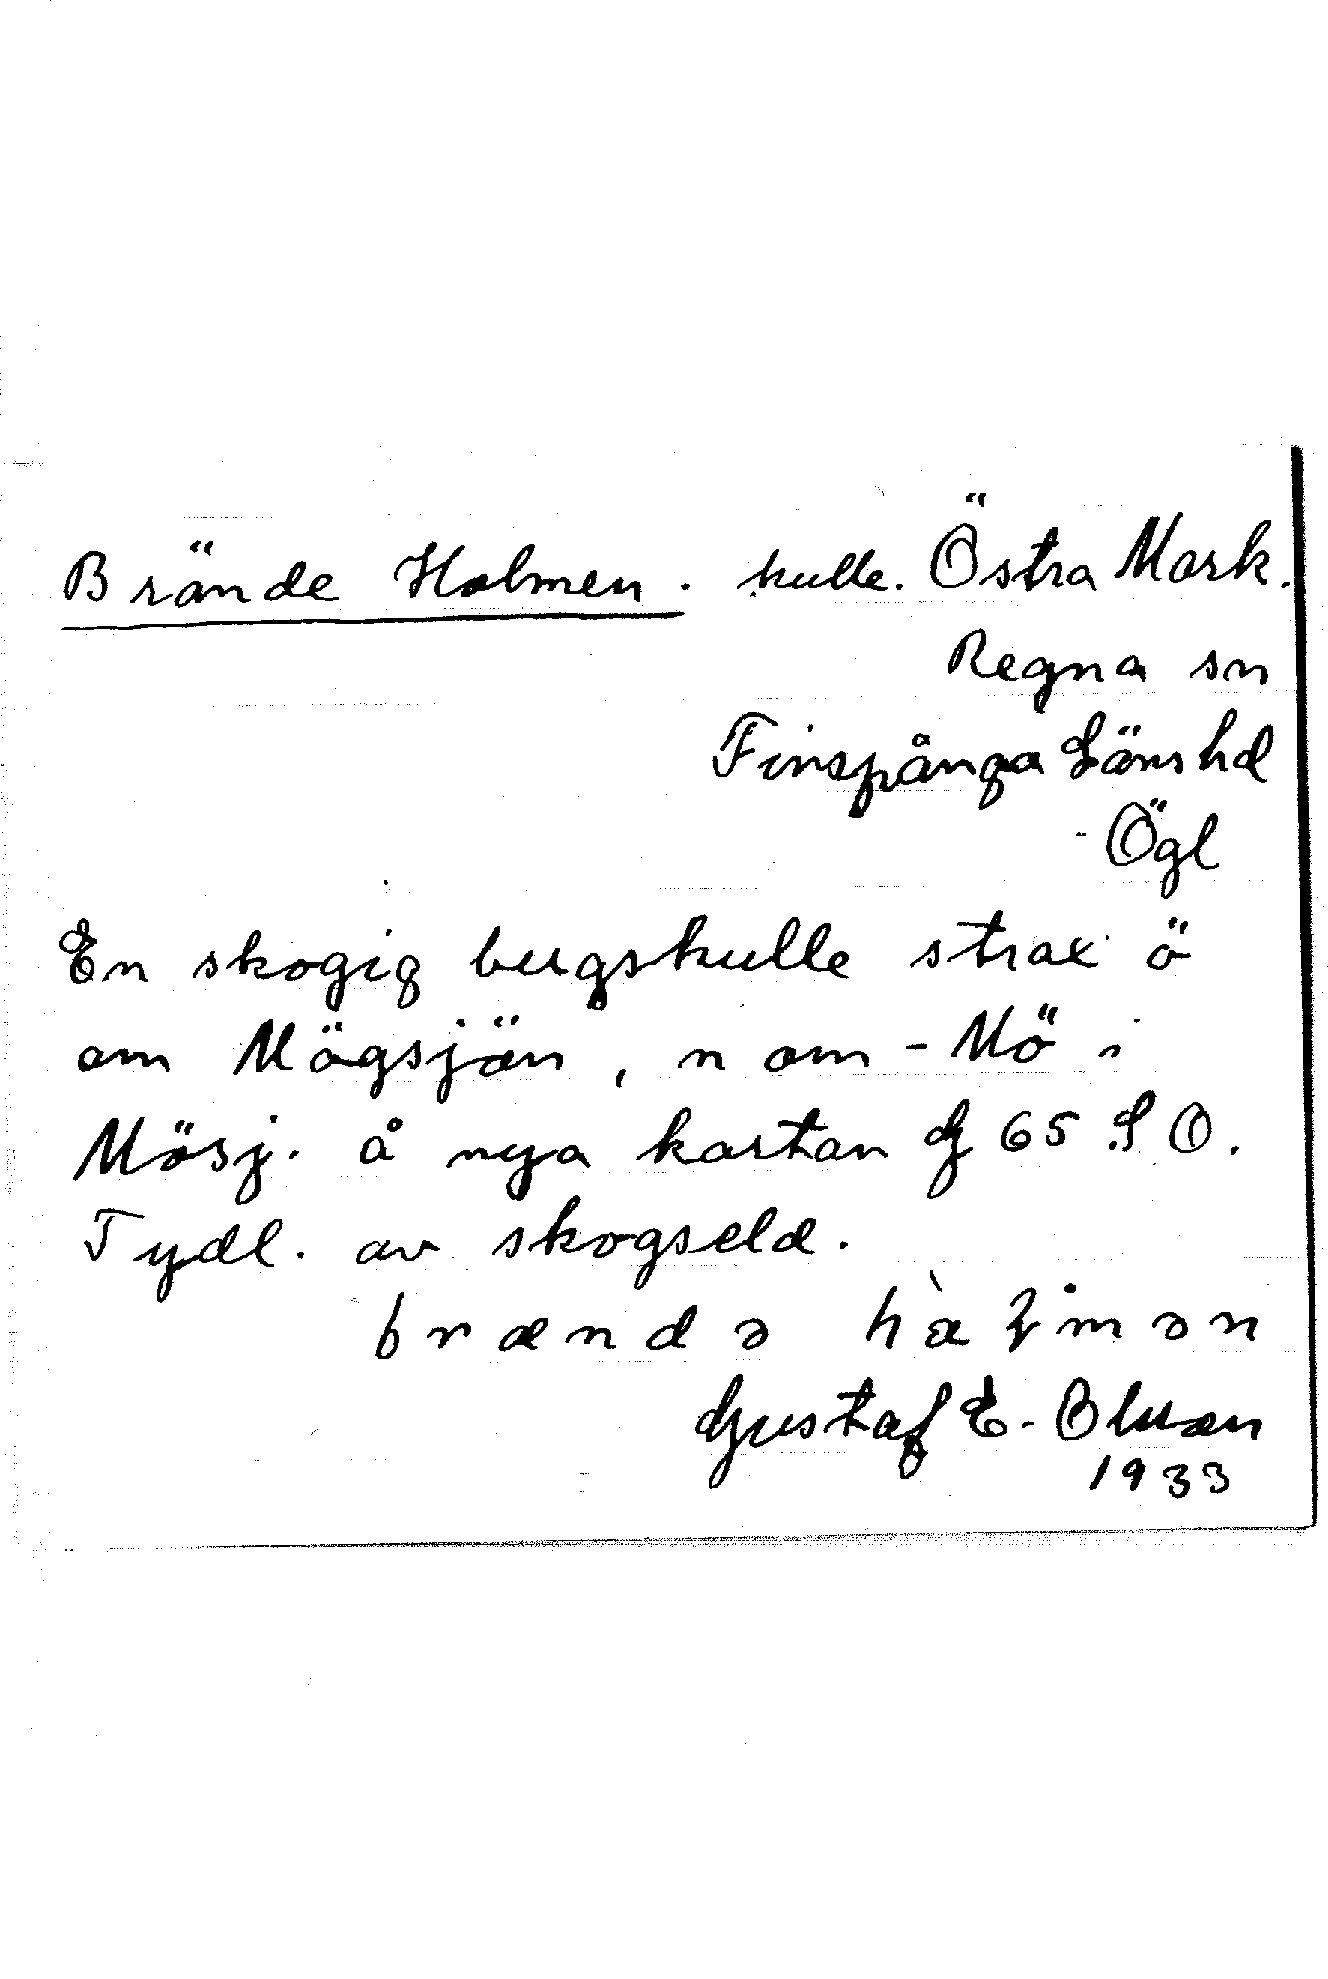 Brände Holmen. kulle. Östra Mark.
Regna sn
Finspånga Läns hd
Ögl
En skogig bergskulle strax ö
om Mögsjön, n om - Mö i
Mösj. å nya kartan G 65 S O.
Tydl. av skogseld.
brændə hàɫmən
Gustaf E.
1933